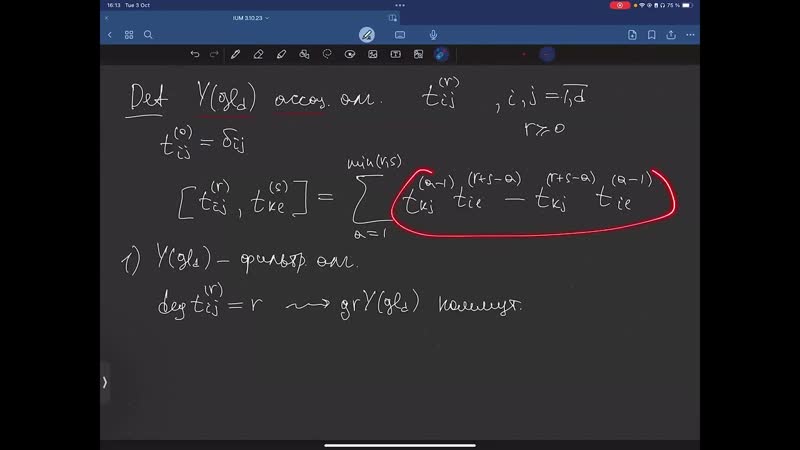 16:13 Tue 3 Oct
75 %
IUM 3.10.23
Def Y(gl_d) ассоц. алг. t_{ij}^{(r)} , i, j = \overline{1,d}
r ⩾ 0
t_{ij}^{(0)} = δ_{ij}
[t_{ij}^{(r)}, t_{kl}^{(s)}] = \sum_{a=1}^{min(r,s)} t_{kj}^{(a-1)} t_{il}^{(r+s-a)} - t_{kj}^{(r+s-a)} t_{il}^{(a-1)}
1) Y(gl_d) – фильтр. алг.
deg t_{ij}^{(r)} = r ⇝ gr Y(gl_d) коммут.